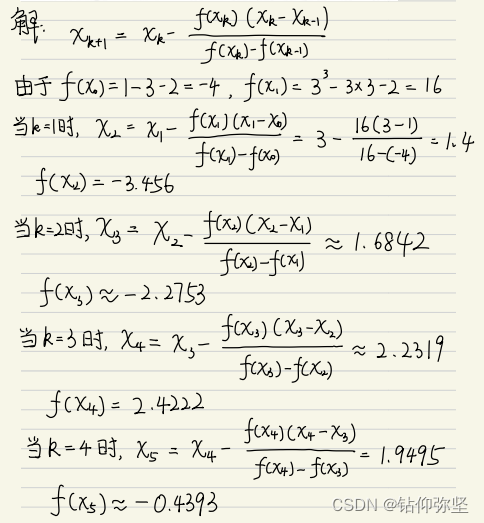 解: x_{k+1} = x_k - \frac{f(x_k)(x_k - x_{k-1})}{f(x_k) - f(x_{k-1})}
由于 f(x₀) = 1-3-2 = -4 , f(x₁) = 3³ - 3×3 - 2 = 16
当k=1时, x₂ = x₁ - \frac{f(x₁)(x₁-x₀)}{f(x₁)-f(x₀)} = 3 - \frac{16(3-1)}{16-(-4)} = 1.4
f(x₂) = -3.456
当k=2时, x₃ = x₂ - \frac{f(x₂)(x₂-x₁)}{f(x₂)-f(x₁)} ≈ 1.6842
f(x₃) ≈ -2.2753
当k=3时, x₄ = x₃ - \frac{f(x₃)(x₃-x₂)}{f(x₃)-f(x₂)} ≈ 2.2319
f(x₄) = 2.4222
当k=4时, x₅ = x₄ - \frac{f(x₄)(x₄-x₃)}{f(x₄)-f(x₃)} = 1.9495
f(x₅) ≈ -0.4393
CSDN @钻仰弥坚